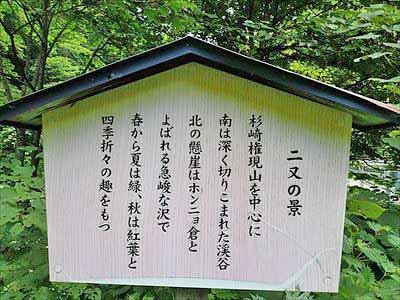 二又の景
杉崎権現山を中心に
南は深く切りこまれた渓谷
北の懸崖はホンニョ倉と
よばれる急峻な沢で
春から夏は緑、秋は紅葉と
四季折々の趣をもつ